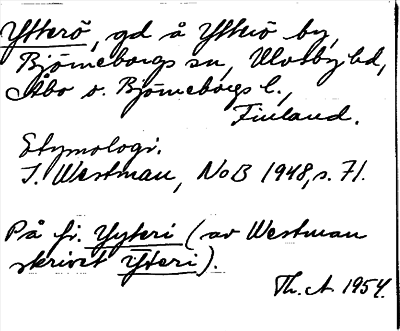 Ytterö, gd å Ytterö by,
Björneborgs sn, Ulvsby hd,
Åbo o. Björneborgs l.,
Finland.
Etymologi.
I. Westman, NoB 1948, s. 71.
På fi. Yyteri (av Westman
skrivet Yteri).
Th. A 1954.